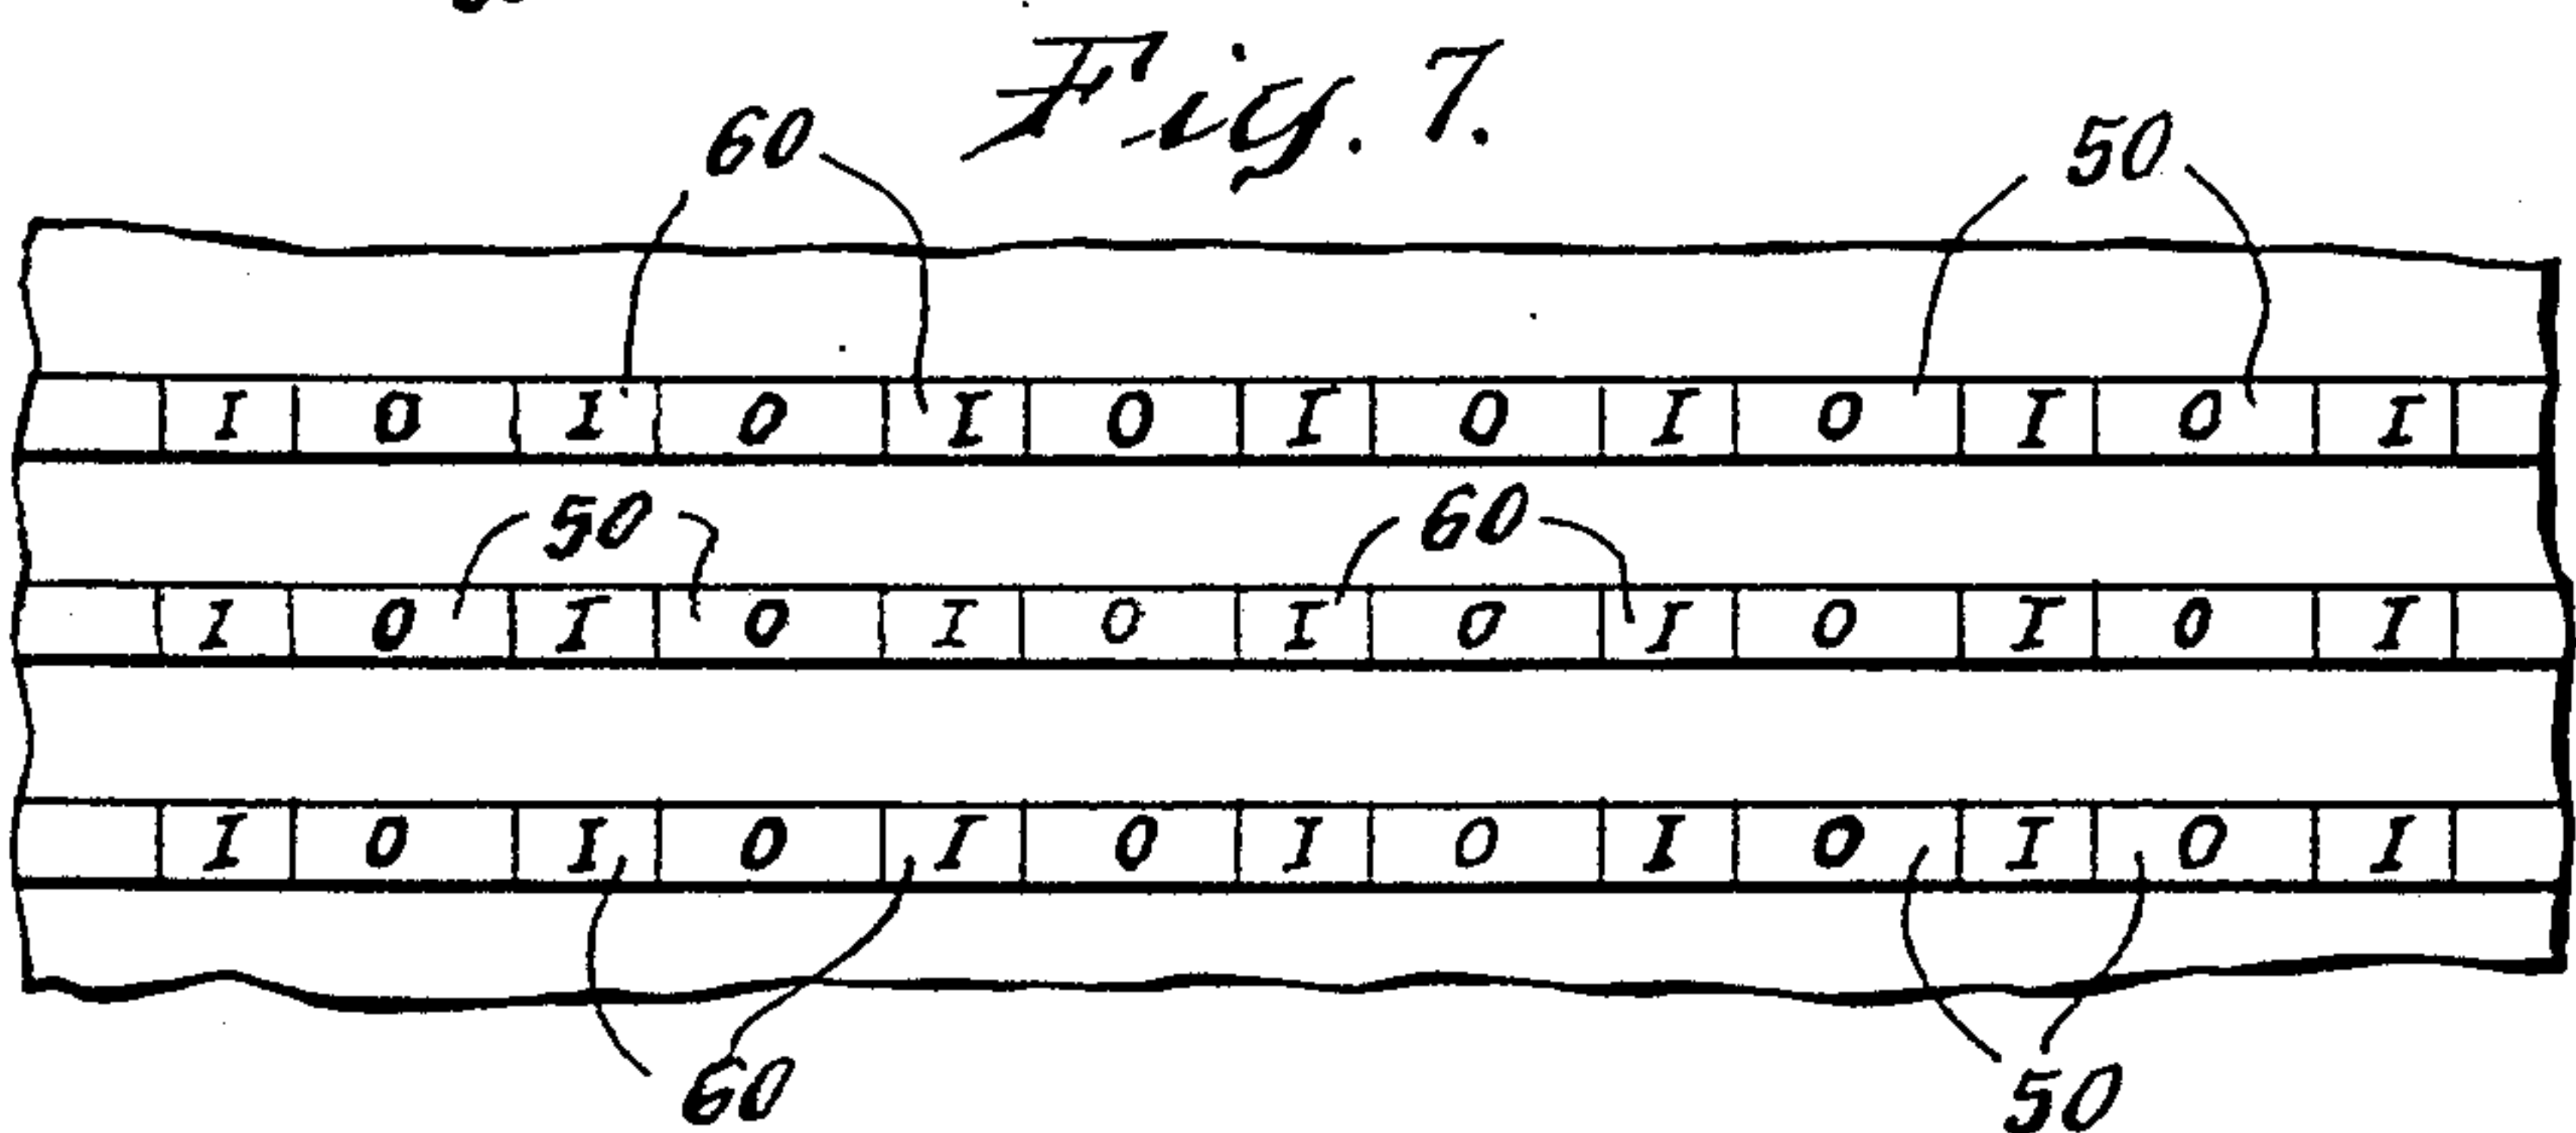 Fig. 7.
60 50
I O I O I O I O I O I O I
50 60
I O I O I O I O I O I O I
I O I O I O I O I O I O I
60 50